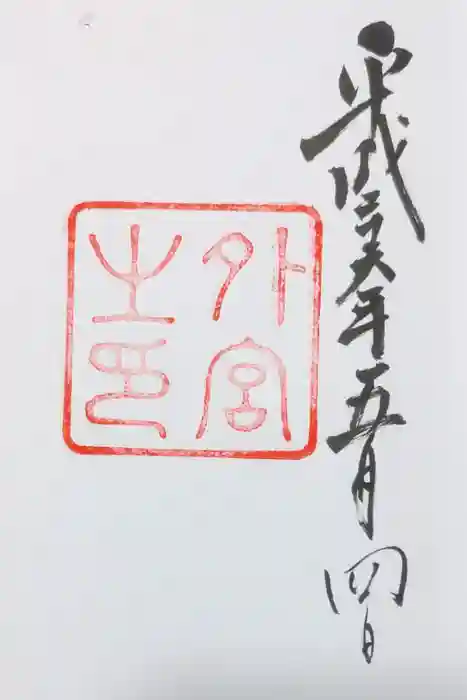 平成
年五月四日
外宮
之印